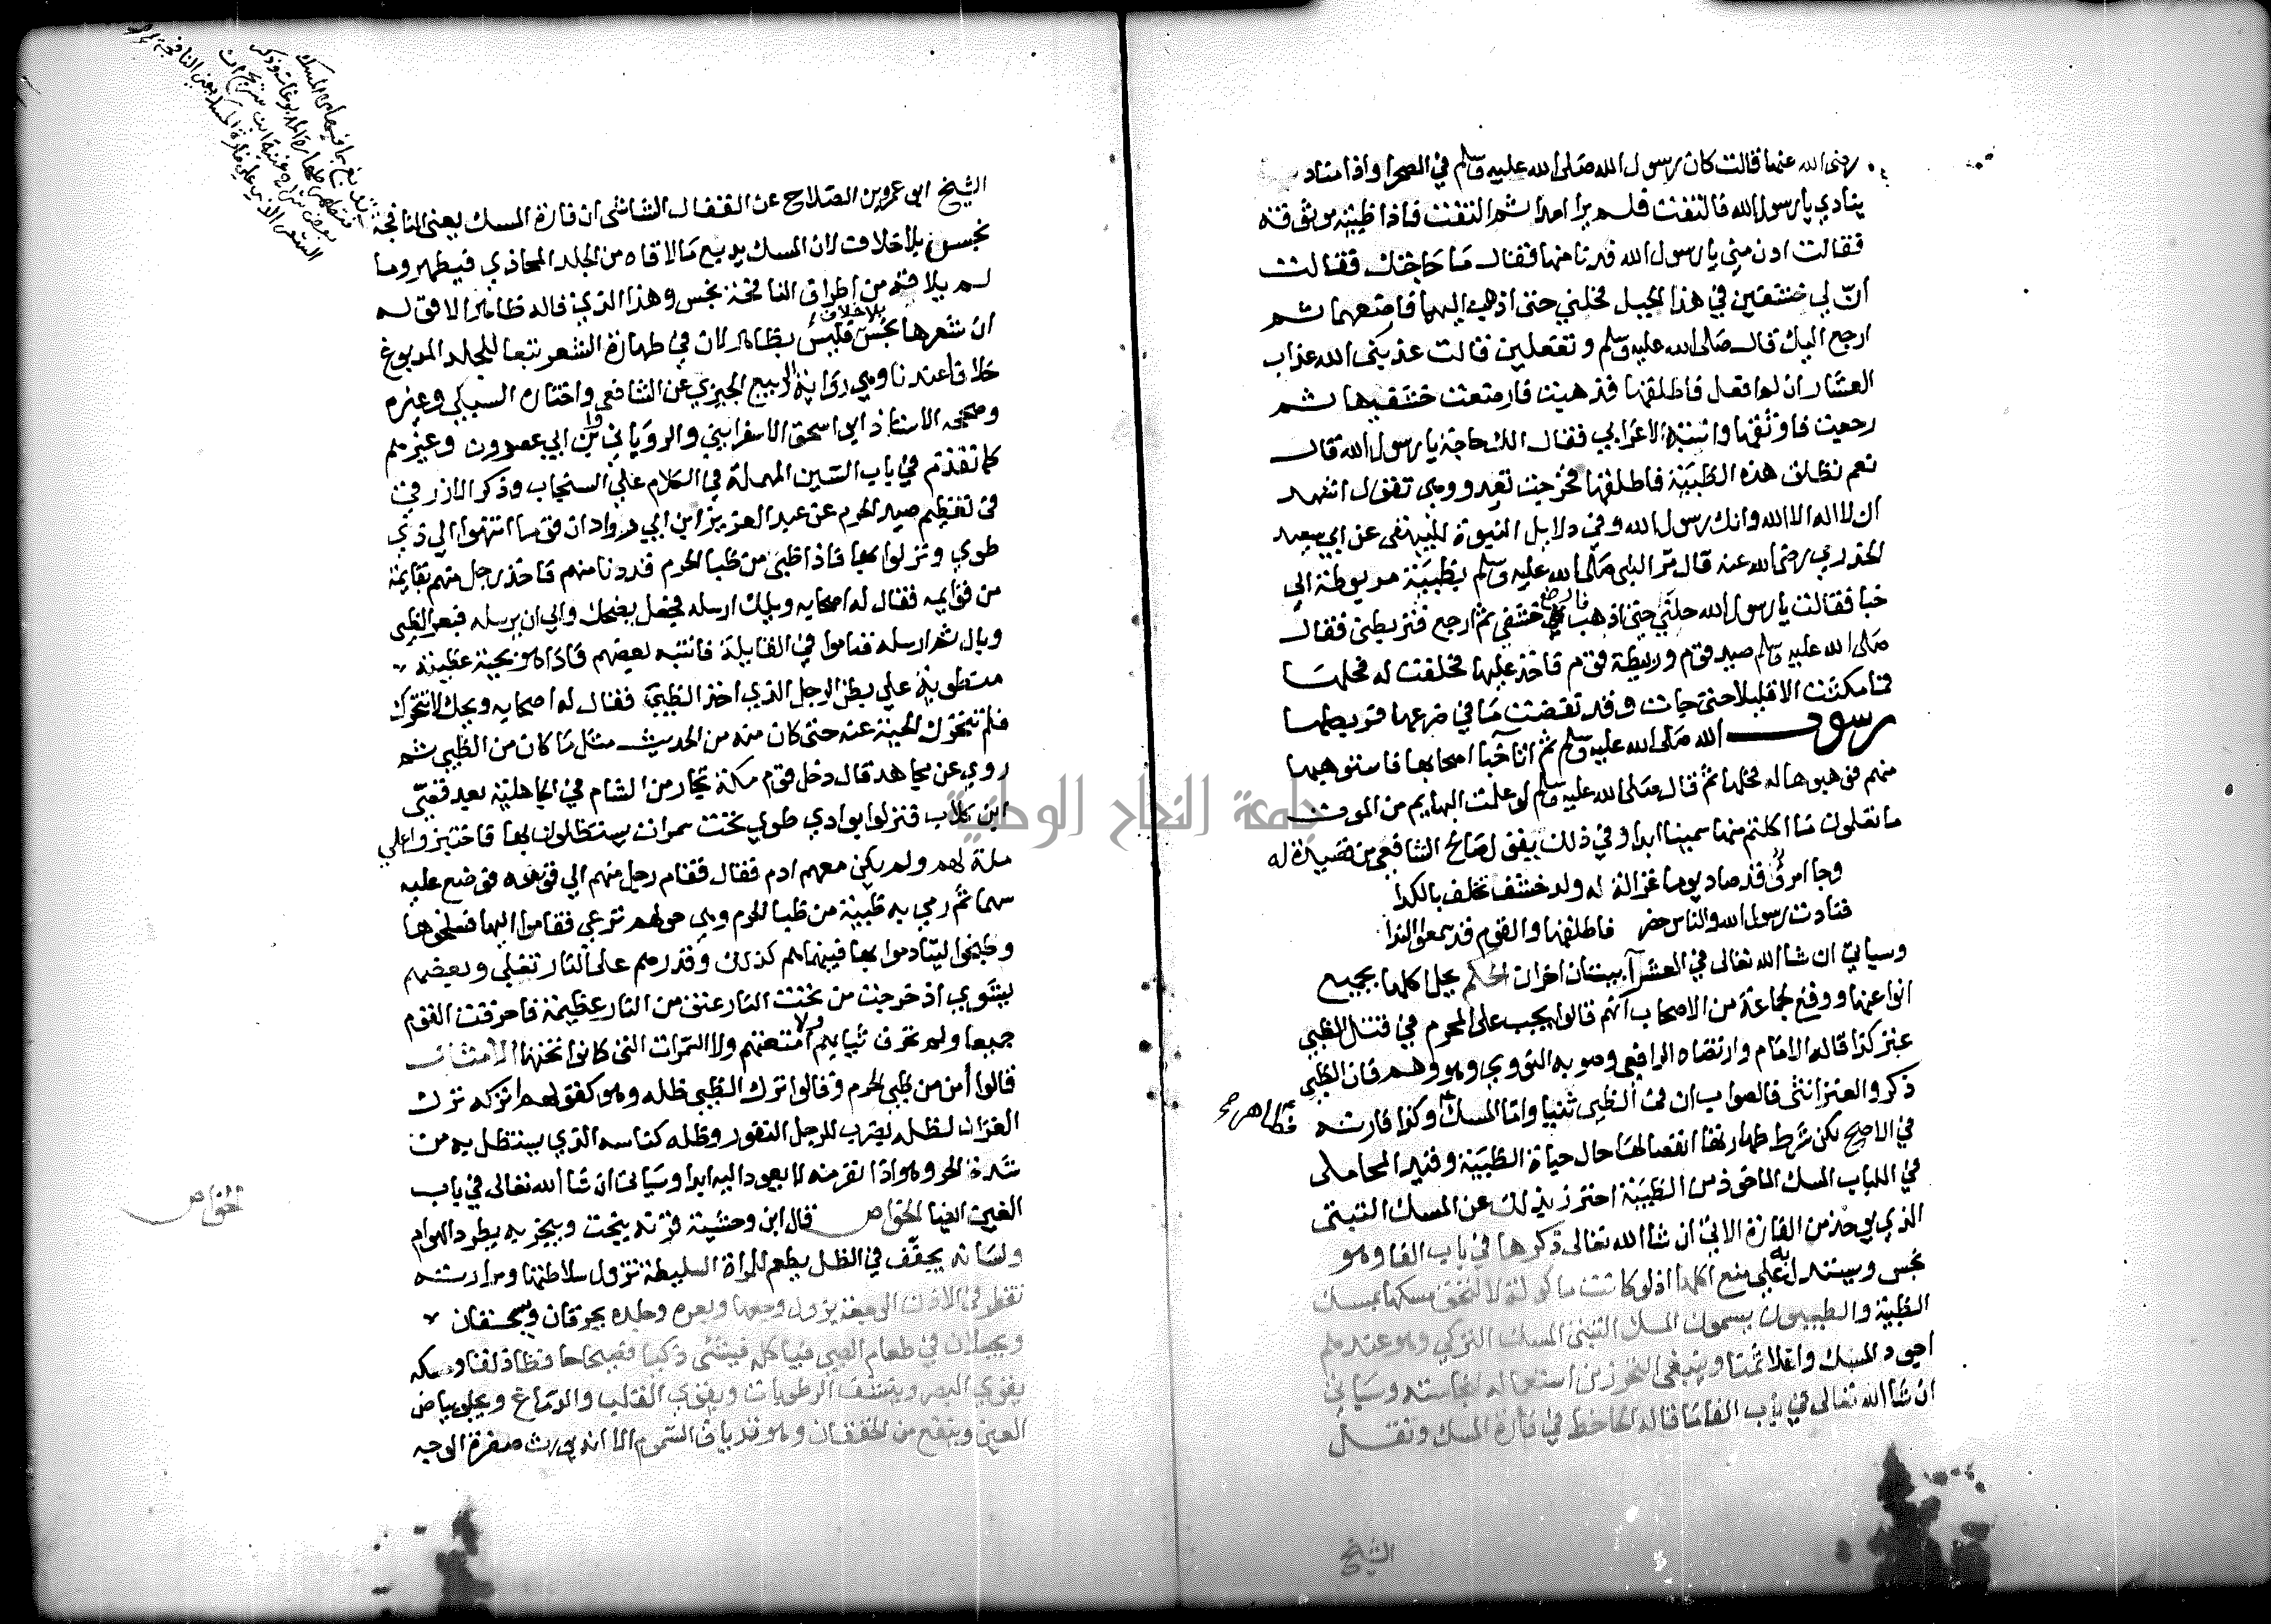 رضى الله عنها قالت كان رسول الله صلى الله عليه وسلم في الصحرا واذا مناد
ينادي يا رسول الله فالتفت فلم ير احدا ثم التفت فاذا ظبية موثوقة
فقالت ادن مني يا رسول الله فدنا منها فقال ما حاجتك فقالت
ان لي خشفين في هذا الجبل فخلني حتى اذهب اليهما فارضعهما ثم
ارجع اليك قال صلى الله عليه وسلم وتفعلين قالت عذبنى الله عذاب
العشار ان لم افعل فاطلقها فذهبت فارضعت خشفيها ثم
رجعت فاوثقها وانتبه الاعرابي فقال الك حاجة يا رسول الله قال
نعم تطلق هذه الظبية فاطلقها فخرجت تعدو وهى تقول اشهد
ان لا اله الا الله وانك رسول الله وفي دلايل النبوة للبيهقى عن ابي سعيد
الخدري رضى الله عنه قال مر النبي صلى الله عليه وسلم بظبية مربوطة الي
خبا فقالت يا رسول الله حلني حتى اذهب فارضع خشفي ثم ارجع فتربطنى فقال
صلى الله عليه وسلم صيد قوم وربيطة قوم فاخذ عليها فحلفت له فحلها
فما مكثت الا قليلا حتى جات وقد نفضت ما في ضرعها فربطها
رسول الله صلى الله عليه وسلم ثم اتا خبا اصحابها فاستوهبها
منهم فوهبوها له فحلها ثم قال صلى الله عليه وسلم لو علمت البهايم من الموت
ما تعلمون ما اكلتم منها سمينا ابدا وفي ذلك يقول صالح الشافعى من قصيدة له
وجا امرؤ قد صاد يوما غزالة له ولد خشف تخلف بالكدا
فنادت رسول الله والناس حضر فاطلقها والقوم قد سمعوا الندا
وسياتي ان شا الله تعالى في العشرا بيتان اخران الحكم يحل اكلها بجميع
انواعها ووقع لجماعة من الاصحاب انهم قالوا يجب على المحرم في قتل الظبي
عنز كذا قاله الامام وارتضاه الرافعي وصوبه النووي وهو وهم فان الظبي
ذكر والعنز انثى فالصواب ان في الظبي ثنيا واما المسك وكذا فارته
فطاهر صح
في الاصح لكن شرط طهارتها انفصالها حال حياة الظبية وقيد المحاملى
في اللباب المسك الماخوذ من الظبية احترز بذلك عن المسك التبتى
الذي يوخذ من الفارة الاتي ان شا الله تعالى ذكرها في باب الفا وهو
نجس ويستدل به على منع اكلها اذ لو كانت ماكولة لالتحق مسكها بمسك
الظبية والطيبيون يسمون المسك التبتى المسك التركي وهو عندهم
اجود المسك واغلا ثمنا وينبغى التحرز من استعماله لنجاسته وسياتي
ان شا الله تعالى في باب الفا ما قاله الجاحظ في فارة المسك ونقل
الشيخ
الشيخ ابي عمرو بن الصلاح عن القفال الشاشى ان فارة المسك يعنى النافجة
نجس بلا خلاف لان المسك يدبغ ما لاقاه من الجلد المحاذي فيطهر وما
لم يلاقه من اطراف النافجة نجس وهذا الذي قاله ظاهر الا قوله
ان شعرها نجس بلا خلاف فليس بظاهر لان في طهارة الشعر تبعا للجلد المدبوغ
خلافا عندنا وهي رواية الربيع الجيزي عن الشافعي واختاره السبكي وغيره
وصححه الاستاذ ابي اسحق الاسفراييني والروياني وابن ابي عصرون وغيرهم
كما تقدم في باب السين المهملة في الكلام علي السنجاب وذكر الازرقي
في تعظيم صيد الحرم عن عبد العزيز ابن ابي درواد ان قوما انتهوا الي ذي
طوي ونزلوا بها فاذا ظبى من ظبا الحرم قد دنا منهم فاخذ رجل منهم بقايمة
من قوايمه فقال له اصحابه ويلك ارسله فجعل يضحك وابي ان يرسله فبعر الظبى
وبال ثم ارسله فناموا في القايلة فانتبه بعضهم فاذا هو بحية عظيمة
متطوية علي بطن الرجل الذي اخذ الظبي فقال له اصحابه ويحك لا تتحرك
فلم تتحرك الحية عنه حتى كان منه من الحديث مثل ما كان من الظبي ثم
روي عن مجاهد قال دخل قوم مكة تجار من الشام في الجاهلية بعد قصي
ابن كلاب فنزلوا بوادي طوي تحت سمرات يستظلون بها فاختبزوا علي
ملة لهم ولم يكن معهم ادم فقال فقام رجل منهم الي قوسه فوضع عليه
سهما ثم رمي به ظبية من ظبا الحرم وهي حولهم ترعي فقاموا اليها فسلخوها
وطبخوا ليتادموا بها فبينما هم كذلك وقدرهم على النار تغلي وبعضهم
يشوي اذ خرجت من تحت النار عنق من النار عظيمة فاحرقت القوم
جميعا ولم تحرق ثيابهم ولا امتعتهم ولا السمرات التى كانوا تحتها الامثال
قالوا أمن من ظبي الحرم وقالوا ترك الظبي ظله وهو كقولهم اتركه ترك
الغزال لظله يضرب للرجل النفور وظله كناسه الذي يستظل به من
شدة الحر وهو اذا نفر منه لا يعود اليه ابدا وسياتى ان شا الله تعالى في باب
الغين ايضا الخواص قال ابن وحشية قرنه ينحت ويبخر به يطرد الهوام
ولسانه يجفف في الظل يطعم للمراة السليطة تزول سلاطتها ومرارته
تقطر في الاذن الوجعة يزول وجعها وبعره وجلده يحرقان ويسحقان
ويجعلان في طعام الصبي فياكله فينشى ذكيا فصيحا حافظا ذلقا ومسكه
يقوي البصر وينشف الرطوبات ويقوي القلب والدماغ ويجلو بياض
العين وينفع من الخفقان وهو ترياق السموم الا انه يورث صفرة الوجه
الخواص
جامعة النجاح الوطنية